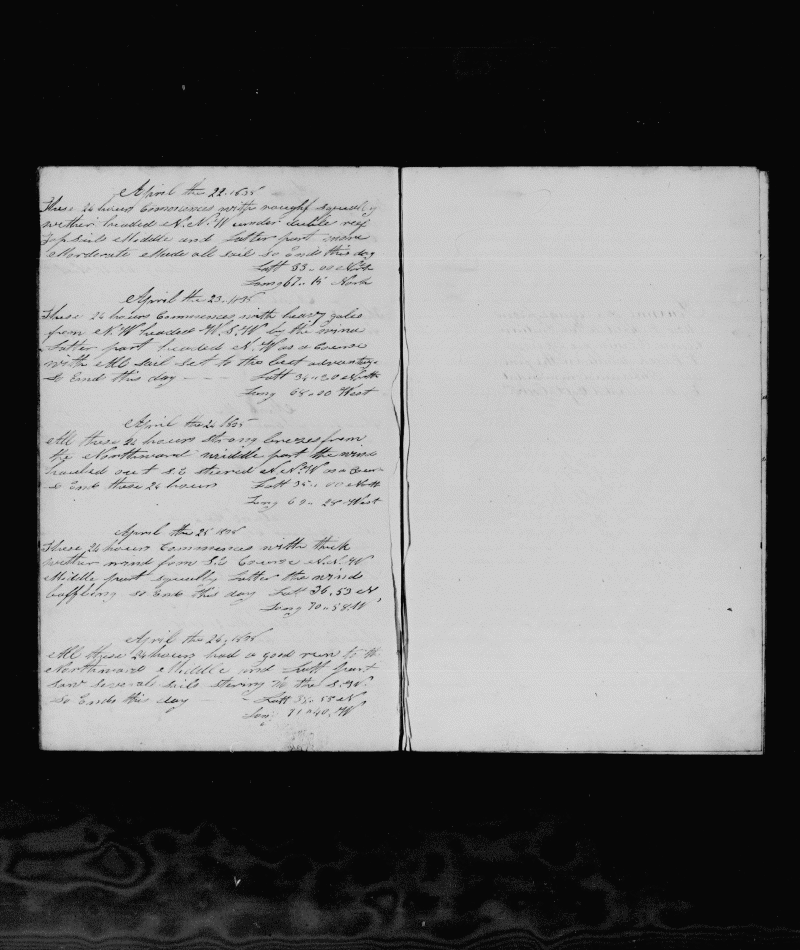 April the 22. 1835
These 24 hours Commences with roughf squally
wether headed N. N. W under duble reef
Topsails Middle and Latter part more
Morderate Made all sail so Ends this day
Latt 33 .. 00 North
Long 67 .. 15 North
April the 23. 1835
These 24 hours Commences with heavy gales
from N. W headed W. S. W by the wind
Latter part headed N. W as a Course
with All sail set to the best advantage
So Ends this day Latt 34 .. 30 North
Long 68 .. 00 West
April the 24 1835
All these 24 hours strong brezes from
the Northward middle part the wind
hauled out S. E stered N. N. W as a Course
So Ends these 24 hours Latt 35 .. 00 North
Long 69 .. 28 West
April the 25 1835
These 24 hours Commences with thick
wether wind from S. E Course N. N. W
Middle part squally Latter the winds
baffling so Ends this day Latt 36 .. 53 N
Long 70 .. 58 W
April the 26, 1835
All these 24 hours had a good run to the
Northward Middle and Latt part
saw severals sails stering to the S. W.
So Ends this day Latt N
Long 71 .. 40, W